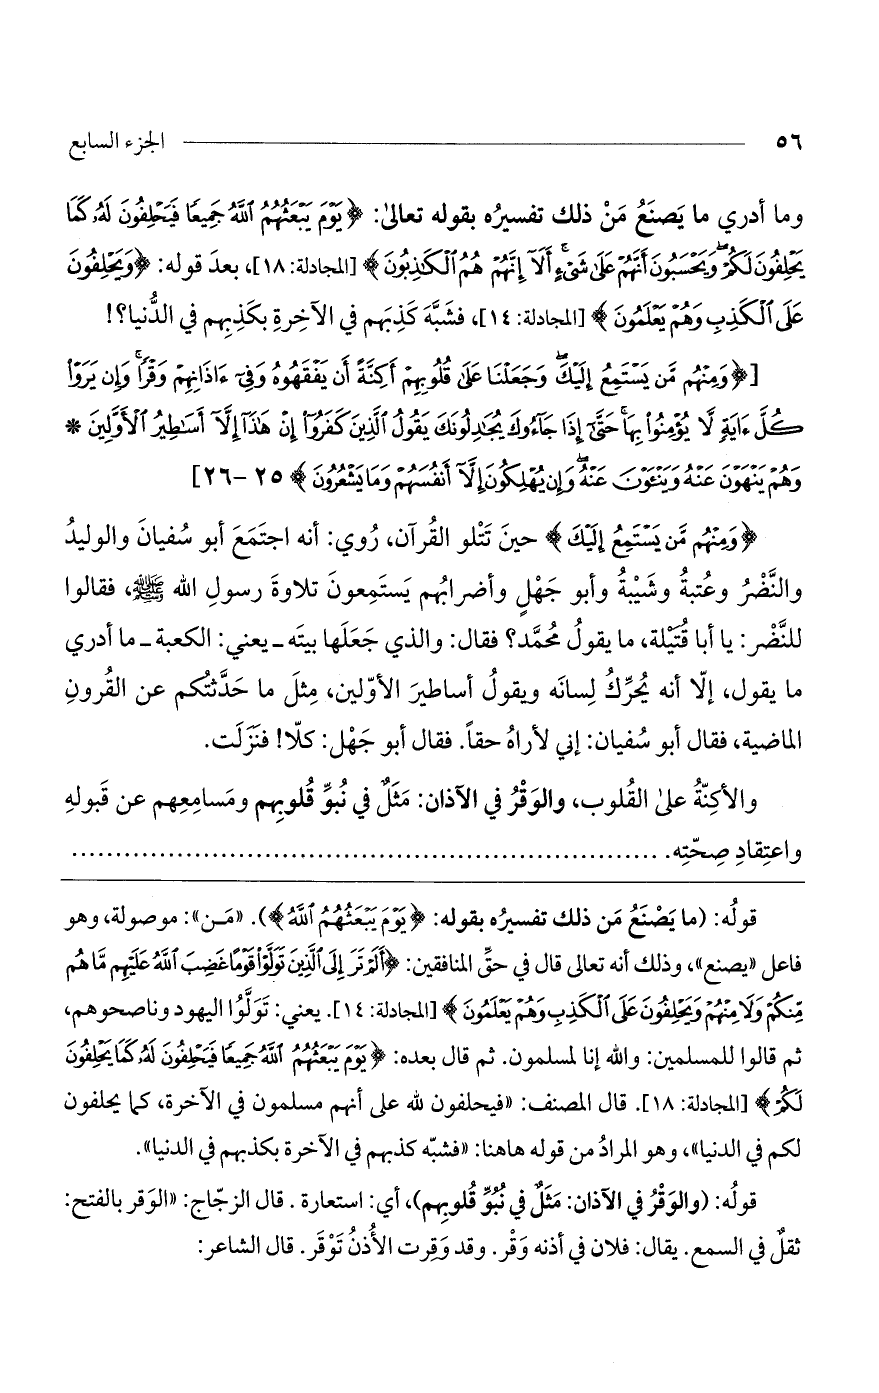 ٥٦ الجزء السابع
وما أدري ما يَصنَعُ مَنْ ذلك تفسيرُه بقوله تعالىٰ: ﴿يَوْمَ يَبْعَثُهُمُ ٱللَّهُ جَمِيعًا فَيَحْلِفُونَ لَهُۥ كَمَا
يَحْلِفُونَ لَكُمْ ۖ وَيَحْسَبُونَ أَنَّهُمْ عَلَىٰ شَىْءٍ ۚ أَلَآ إِنَّهُمْ هُمُ ٱلْكَٰذِبُونَ﴾ [المجادلة: ١٨]، بعدَ قوله: ﴿وَيَحْلِفُونَ
عَلَى ٱلْكَذِبِ وَهُمْ يَعْلَمُونَ﴾ [المجادلة: ١٤]، فشَبَّهَ كَذِبَهم في الآخِرةِ بكَذِبِهم في الدُّنيا؟!
[﴿وَمِنْهُم مَّن يَسْتَمِعُ إِلَيْكَ ۖ وَجَعَلْنَا عَلَىٰ قُلُوبِهِمْ أَكِنَّةً أَن يَفْقَهُوهُ وَفِىٓ ءَاذَانِهِمْ وَقْرًا ۚ وَإِن يَرَوْا۟
كُلَّ ءَايَةٍ لَّا يُؤْمِنُوا۟ بِهَا ۚ حَتَّىٰٓ إِذَا جَآءُوكَ يُجَٰدِلُونَكَ يَقُولُ ٱلَّذِينَ كَفَرُوٓا۟ إِنْ هَٰذَآ إِلَّآ أَسَٰطِيرُ ٱلْأَوَّلِينَ *
وَهُمْ يَنْهَوْنَ عَنْهُ وَيَنْـَٔوْنَ عَنْهُ ۖ وَإِن يُهْلِكُونَ إِلَّآ أَنفُسَهُمْ وَمَا يَشْعُرُونَ﴾ ٢٥ -٢٦]
﴿وَمِنْهُم مَّن يَسْتَمِعُ إِلَيْكَ﴾ حينَ تَتْلو القُرآن، رُوي: أنه اجتَمَعَ أبو سُفيانَ والوليدُ
والنَّضْرُ وعُتبةُ وشَيْبةُ وأبو جَهْلٍ وأضرابُهم يَستَمِعونَ تلاوةَ رسولِ الله ﷺ، فقالوا
للنَّضْر: يا أبا قُتَيْلة، ما يقولُ مُحمَّد؟ فقال: والذي جَعَلَها بيتَه ـ يعني: الكعبة ـ ما أدري
ما يقول، إلّا أنه يُحرِّكُ لِسانَه ويقولُ أساطيرَ الأوّلين، مِثلَ ما حَدَّثتُكم عن القُرونِ
الماضية، فقال أبو سُفيان: إني لأراهُ حقاً. فقال أبو جَهْل: كلّا! فنَزَلَت.
والأكِنّةُ علىٰ القُلوب، والوَقْرُ في الآذان: مَثَلٌ في نُبوِّ قُلوبِهم ومَسامِعِهم عن قَبولهِ
واعتِقادِ صِحّتِه. ................................................................
قولُه: (ما يَصْنَعُ مَن ذلك تفسيرُه بقوله: ﴿يَوْمَ يَبْعَثُهُمُ ٱللَّهُ﴾). «مَـن»: موصولة، وهو
فاعل «يصنع»، وذلك أنه تعالى قال في حقِّ المنافقين: ﴿أَلَمْ تَرَ إِلَى ٱلَّذِينَ تَوَلَّوْا۟ قَوْمًا غَضِبَ ٱللَّهُ عَلَيْهِم مَّا هُم
مِّنكُمْ وَلَا مِنْهُمْ وَيَحْلِفُونَ عَلَى ٱلْكَذِبِ وَهُمْ يَعْلَمُونَ﴾ [المجادلة: ١٤]. يعني: تَوَلَّوُا اليهود وناصحوهم،
ثم قالوا للمسلمين: والله إنا لمسلمون. ثم قال بعده: ﴿يَوْمَ يَبْعَثُهُمُ ٱللَّهُ جَمِيعًا فَيَحْلِفُونَ لَهُۥ كَمَا يَحْلِفُونَ
لَكُمْ﴾ [المجادلة: ١٨]. قال المصنف: «فيحلفون لله على أنهم مسلمون في الآخرة، كما يحلفون
لكم في الدنيا»، وهو المرادُ من قوله هاهنا: «فشبّه كذبهم في الآخرة بكذبهم في الدنيا».
قولُه: (والوَقْرُ في الآذان: مَثَلٌ في نُبُوِّ قُلوبِهم)، أي: استعارة. قال الزجّاج: «الوَقر بالفتح:
ثقلٌ في السمع. يقال: فلان في أذنه وَقْر. وقد وَقِرت الأُذنُ تَوْقَر. قال الشاعر: